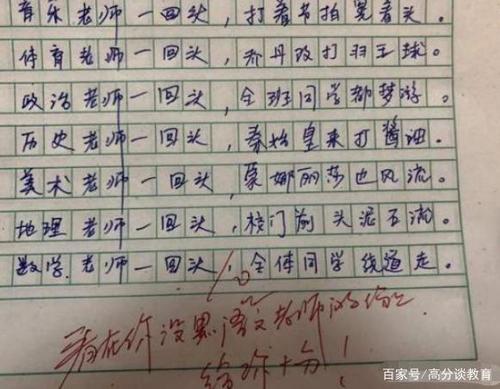 音乐老师一回头,打着节拍晃着头。
体育老师一回头,乔丹改打羽王球。
政治老师一回头,全班同学都梦游。
历史老师一回头,秦始皇来打酱油。
美术老师一回头,蒙娜丽莎也风流。
地理老师一回头,校门前头泥石流。
数学老师一回头,全体同学绕道走。
10
看在你没黑语文老师的份上
给你十分!
百家号/高分谈教育